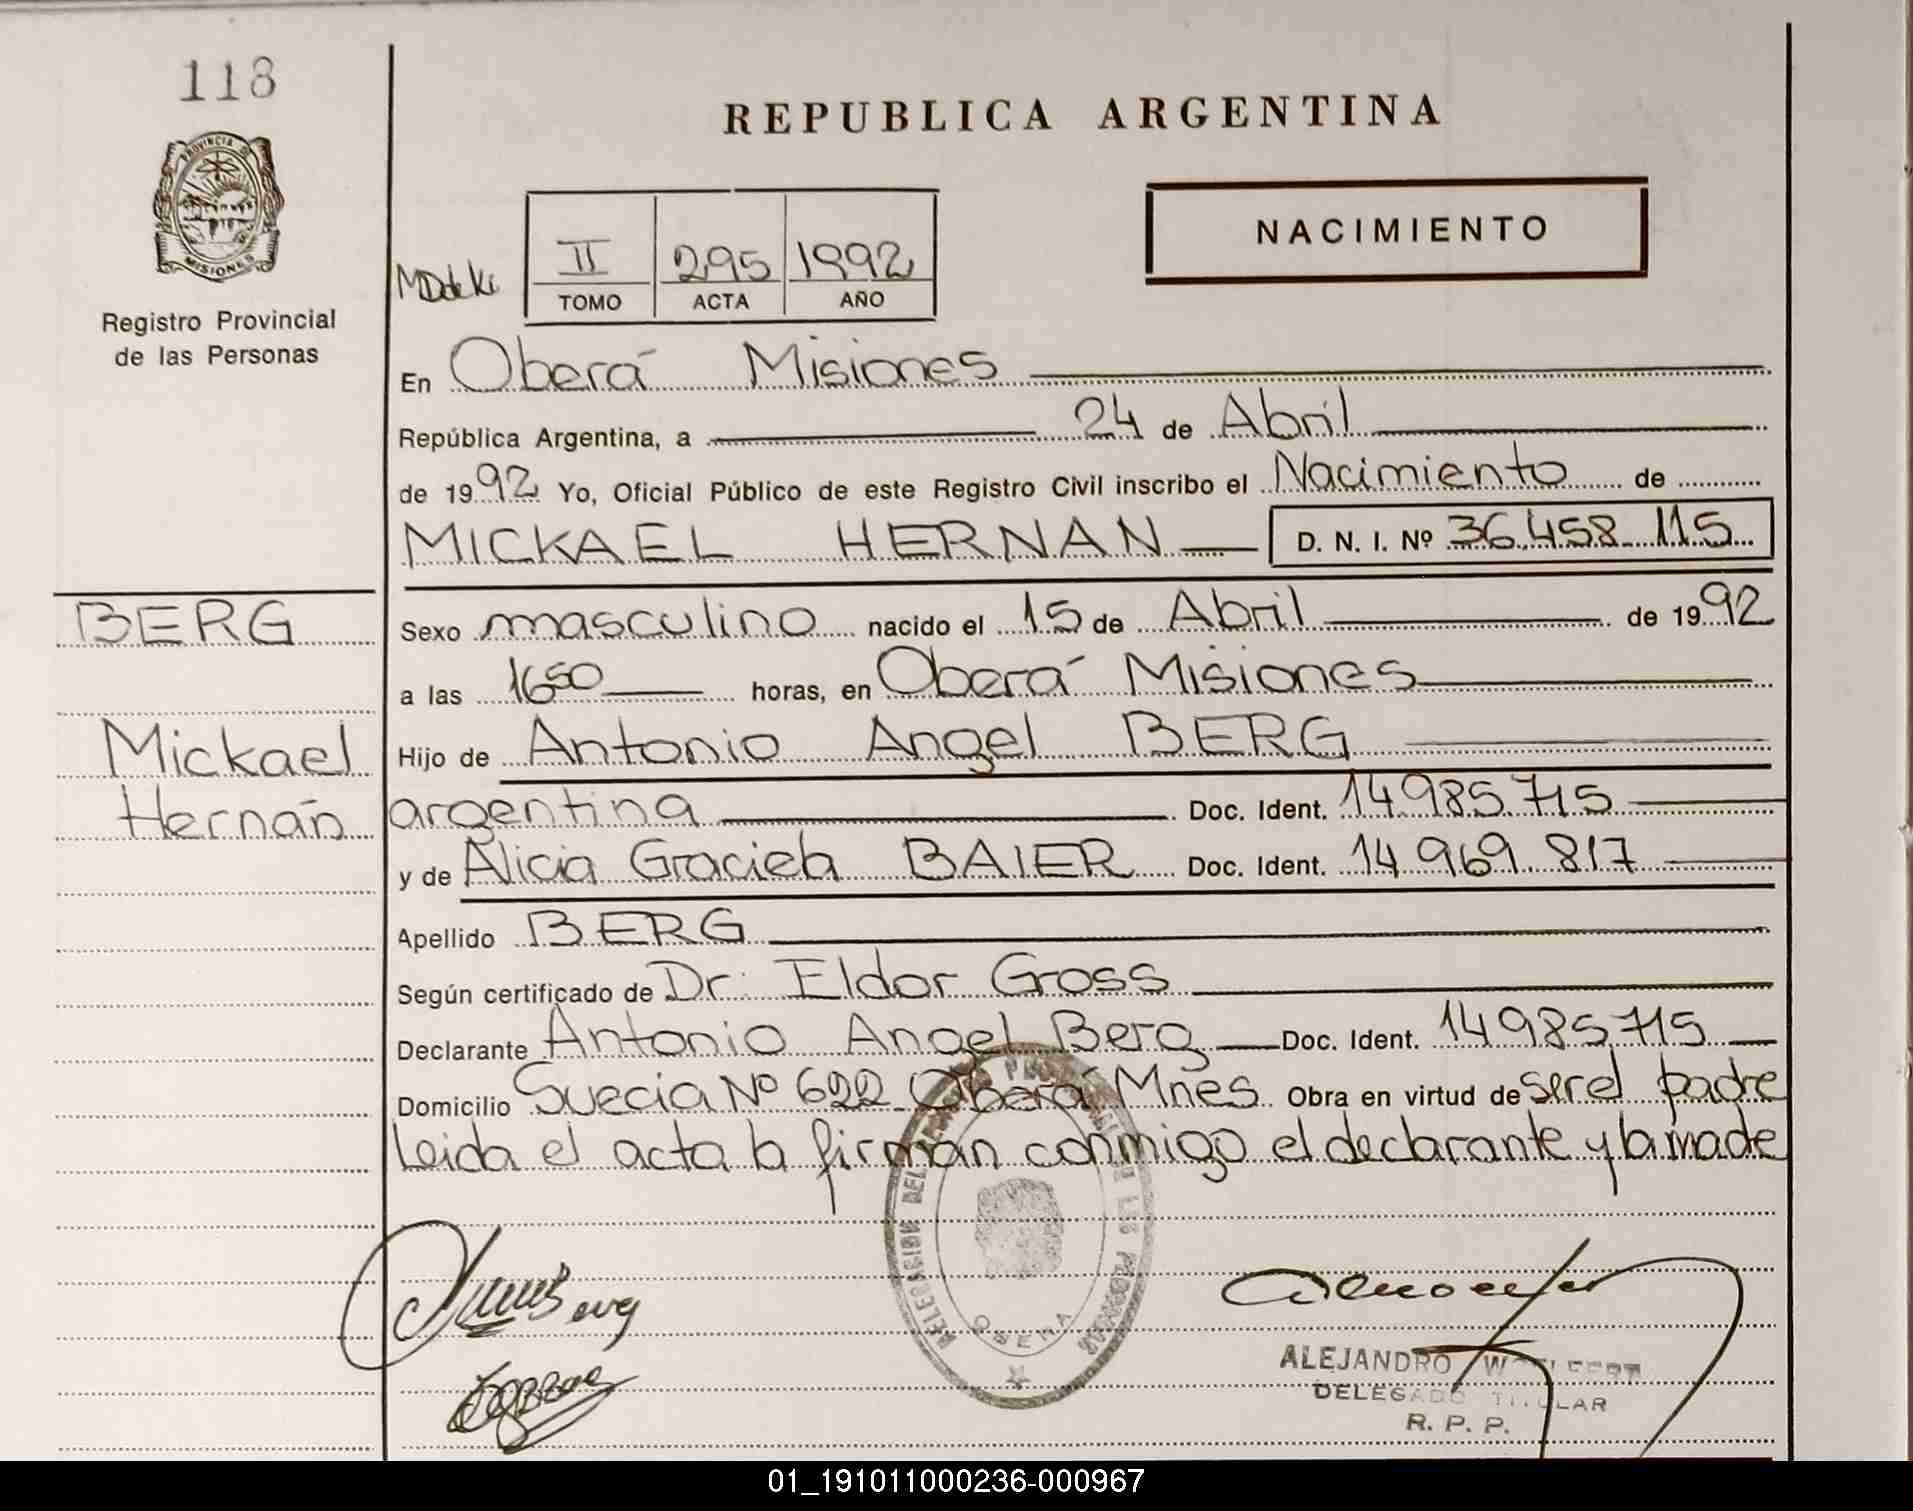 118
PROVINCIA DE
MISIONES
Registro Provincial
de las Personas
REPUBLICA ARGENTINA
NACIMIENTO
II 295 1992
TOMO ACTA AÑO
En Oberá Misiones
República Argentina, a 24 de Abril
de 1992 Yo, Oficial Público de este Registro Civil inscribo el Nacimiento de
MICKAEL HERNAN D. N. I. Nº 36.458.115
BERG
Sexo masculino nacido el 15 de Abril de 1992
a las 1650 horas, en Oberá Misiones
Mickael
Hijo de Antonio Angel BERG
Hernán
argentina Doc. Ident. 14.985.715
y de Alicia Graciela BAIER Doc. Ident. 14.969.817
Apellido BERG
Según certificado de Dr. Eldor Gross
Declarante Antonio Angel Berg Doc. Ident. 14985.715
Domicilio Suecia Nº 622 Oberá Mnes Obra en virtud de ser el padre
Leida el acta la firman conmigo el declarante y la made
OBERA
ALEJANDRO
DELEGADO TITULAR
R. P. P.
01_191011000236-000967